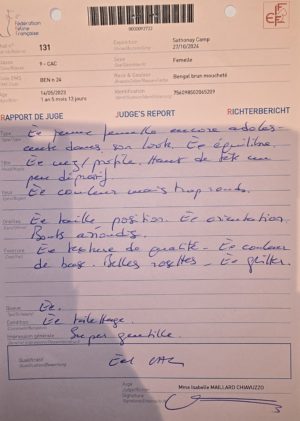 Fédération
Féline
Française
131
Exposition
Sathonay Camp
27/10/2024
9 - CAC
Sexe
Femelle
BEN n 24
Race & Couleur
Bengal brun moucheté
14/05/2023
1 an 5 mois 13 jours
Identification
756098502065209
RAPPORT DE JUGE
JUDGE'S REPORT
RICHTERBERICHT
Type
Ex jeune femelle encore adoles-
cente dans son look. Ex équilibre.
Tête
Ex nez/profil. Haut de tête un
peu dépressif.
Yeux
Ex couleur mais trop ronds.
Oreilles
Ex taille, position. Ex orientation.
Bouts arrondis.
Fourrure
Ex texture de qualité - Ex couleur
de base. Belles rosettes - Ex glitter.
Queue
Ex.
Condition
Ex toilettage.
Impression générale
Super gentille.
Qualificatif
Ex1 CAC
Juge
Mme Isabelle MAILLARD CHIAVUZZO
Signature